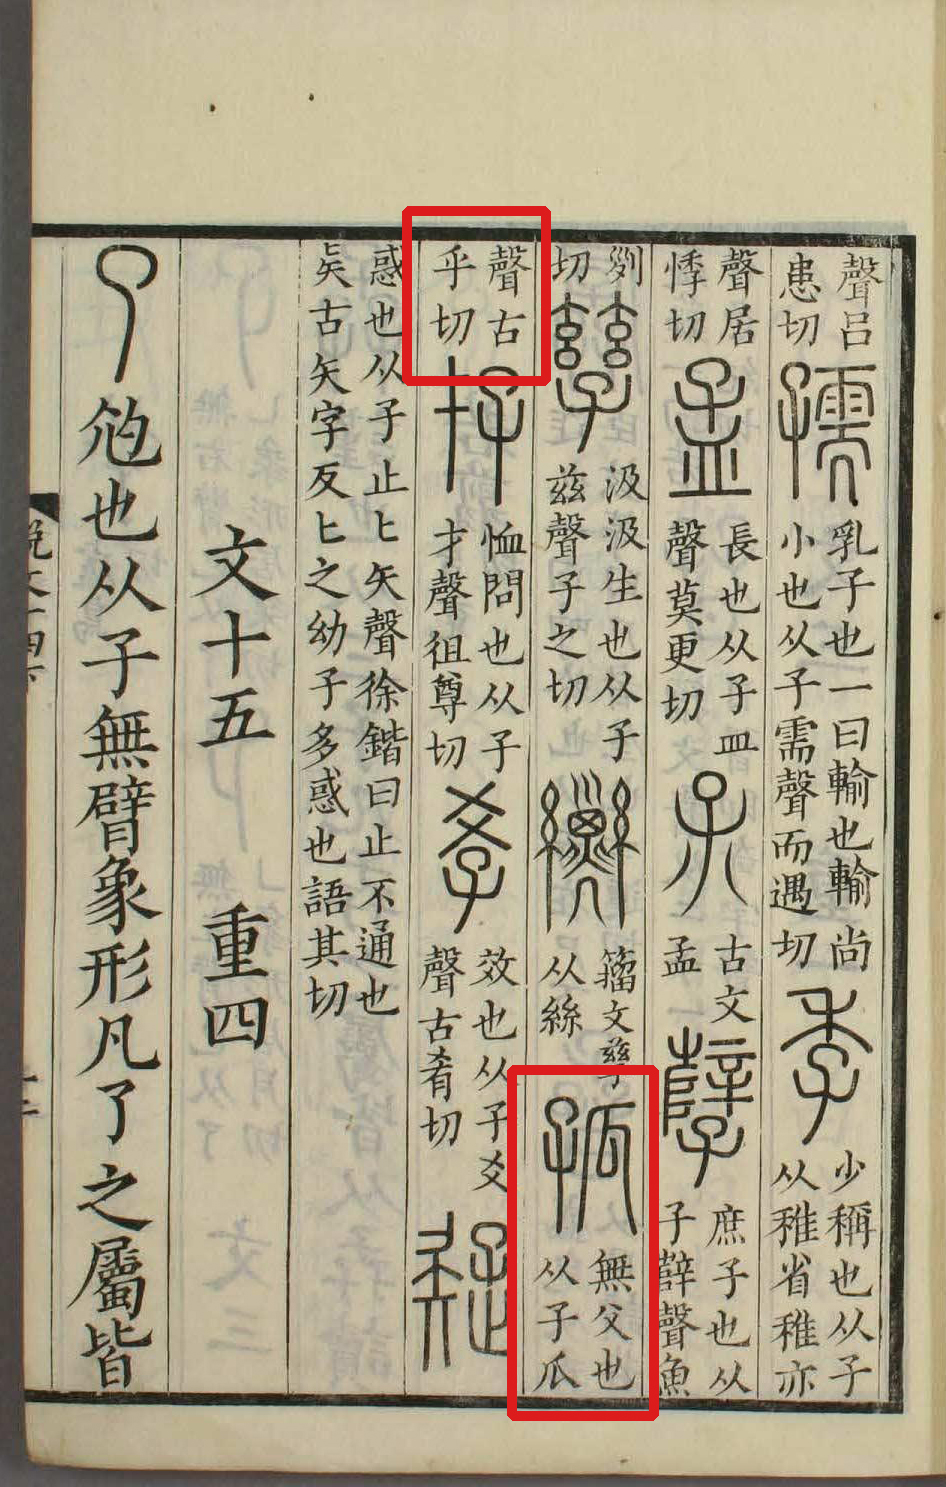 聲呂患切 孺 乳子也一曰輸也輸尚小也从子需聲而遇切 季 少稱也从子从稚省稚亦
聲居悸切 孟 長也从子皿聲莫更切 㜽 古文孟 孼 庶子也从子辥聲魚
𠛱切 孳 汲汲生也从子茲聲子之切 𡦗 籒文孳从絲 孤 無父也从子瓜
聲古乎切 存 恤問也从子才聲徂尊切 𡥈 效也从子爻聲古肴切 疑
惑也从子止匕矢聲徐鍇曰止不通也𠤕古矢字反匕之幼子多惑也語其切
文十五 重四
了 尥也从子無臂象形凡了之屬皆